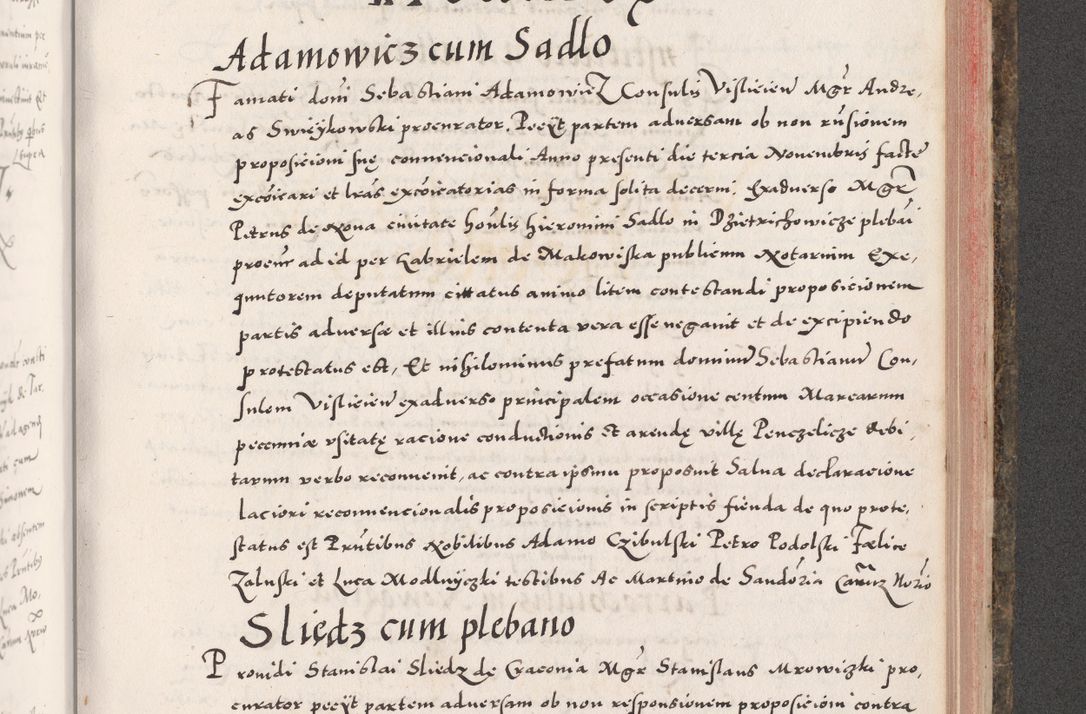 Adamowicz cum Sadlo
Famati dom̃i Sebastiani Adamowicz Consulis Vislicien̄ Mg̃r Andre,
as Swieykowski procurator. Pecÿt partem adversam ob non rn̄sionem
proposicioni suę convencionali Anno presenti die tercia Novembris facte
excōicari et lrās excōicatorias in forma solita decerni, Exadverso Mg̃r
Petrus de Nova civitate honīlis Hieronimi Sadlo in Dzietrichowicze plebāi
procur̄ ad id per Gabrielem de Makowiska publicum Notarium Exe,
quutorem deputatum cittatus animo litem contestandi proposicionem
partis adversæ et illius contenta vera esse negavit et de excipiendo
protestatus est, Et nihilominus prefatum dominū Sebastianū Con,
sulem Vislicien̄ exadverso principalem occasione centum Marcarum
pecuniæ vsitatę racione conductionis et arendę villę Penczelicze debi,
tarum verbo reconvenit, ac contra ipsum proposuit Salva declaracione
laciori reconvencionalis proposicionis in scriptis fienda de quo prote,
status est Prn̄tibus Nobilibus Adamo Czibulski Petro Podolski Fælice
Zaluski et Luca Modlnyczki testibus Ac Martino de Sandōria Cam̄r Nōrio
Sliędz cum plebano
Providi Stanislai Sliedz de Cracovia Mg̃r Stanislaus Mrowiczki pro,
curator pecÿt partem adversam ob non responsionem proposicioni contra